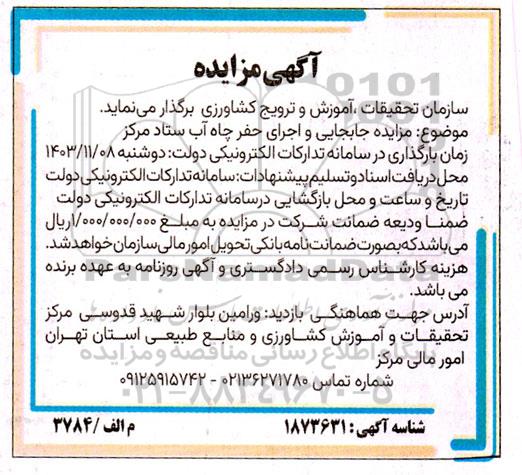 آگهی مزایده
سازمان تحقیقات ،آموزش و ترویج کشاورزی برگذار می‌نماید.
موضوع: مزایده جابجایی و اجرای حفر چاه آب ستاد مرکز
زمان بارگذاری در سامانه تدارکات الکترونیکی دولت: دوشنبه ۱۴۰۳/۱۱/۰۸
محل دریافت اسناد و تسلیم پیشنهادات: سامانه تدارکات الکترونیکی دولت
تاریخ و ساعت و محل بازگشایی درسامانه تدارکات الکترونیکی دولت
ضمنا ودیعه ضمانت شرکت در مزایده به مبلغ ۱/۰۰۰/۰۰۰/۰۰۰ریال
می‌باشد که بصورت ضمانت نامه بانکی تحویل امور مالی سازمان خواهد شد.
هزینه کارشناس رسمی دادگستری و آگهی روزنامه به عهده برنده
می باشد.
آدرس جهت هماهنگی بازدید: ورامین بلوار شهید قدوسی مرکز
تحقیقات و آموزش کشاورزی و منابع طبیعی استان تهران
امور مالی مرکز
شماره تماس ۰۲۱۳۶۲۷۱۷۸۰ - ۰۹۱۲۵۹۱۵۷۴۲
شناسه آگهی: ۱۸۷۳۶۳۱ م الف /۳۷۸۴
ParsNamadData
پایگاه اطلاع رسانی مناقصه و مزایده
۰۲۱-۸۸۳۴۹۶۷۰-۵